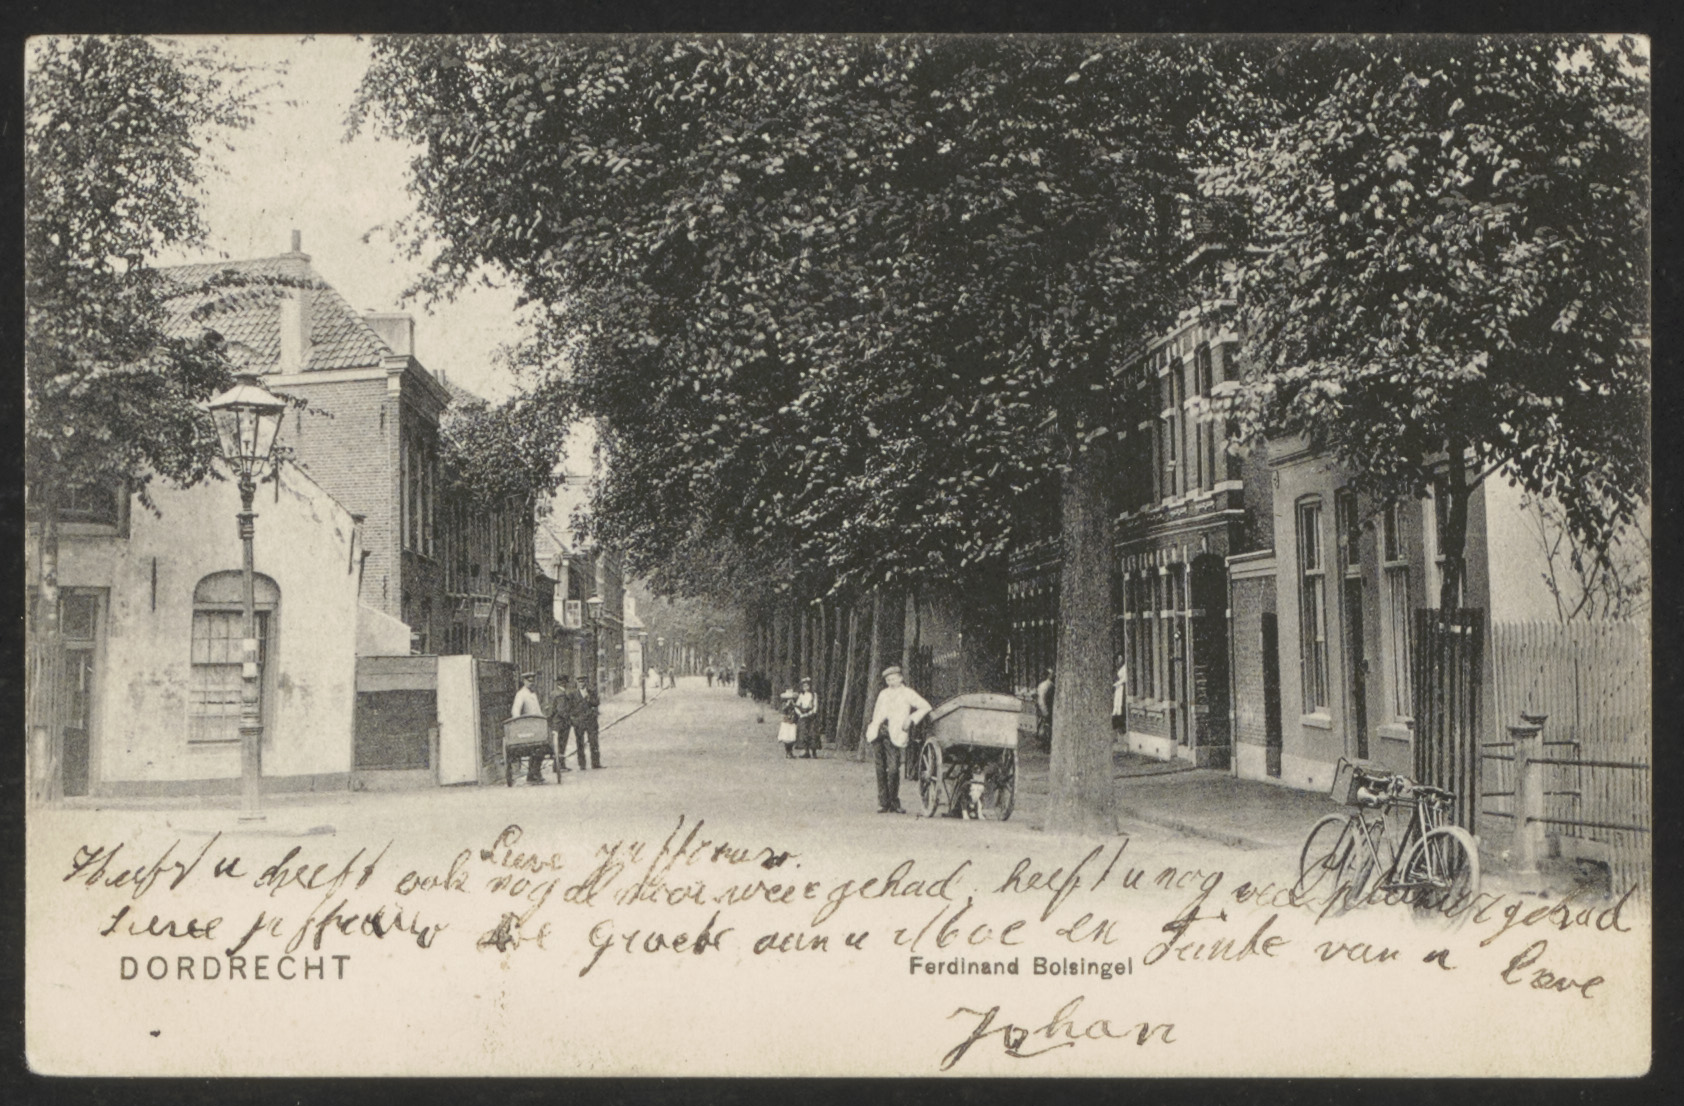 Lieve juffrouw.
Heeft u heeft ook nog al mooi weer gehad. heeft u nog veel plezier gehad
Lieve juffrouw Groete aan u Moe en Tante van u Lieve
DORDRECHT
Ferdinand Bolsingel
Johan